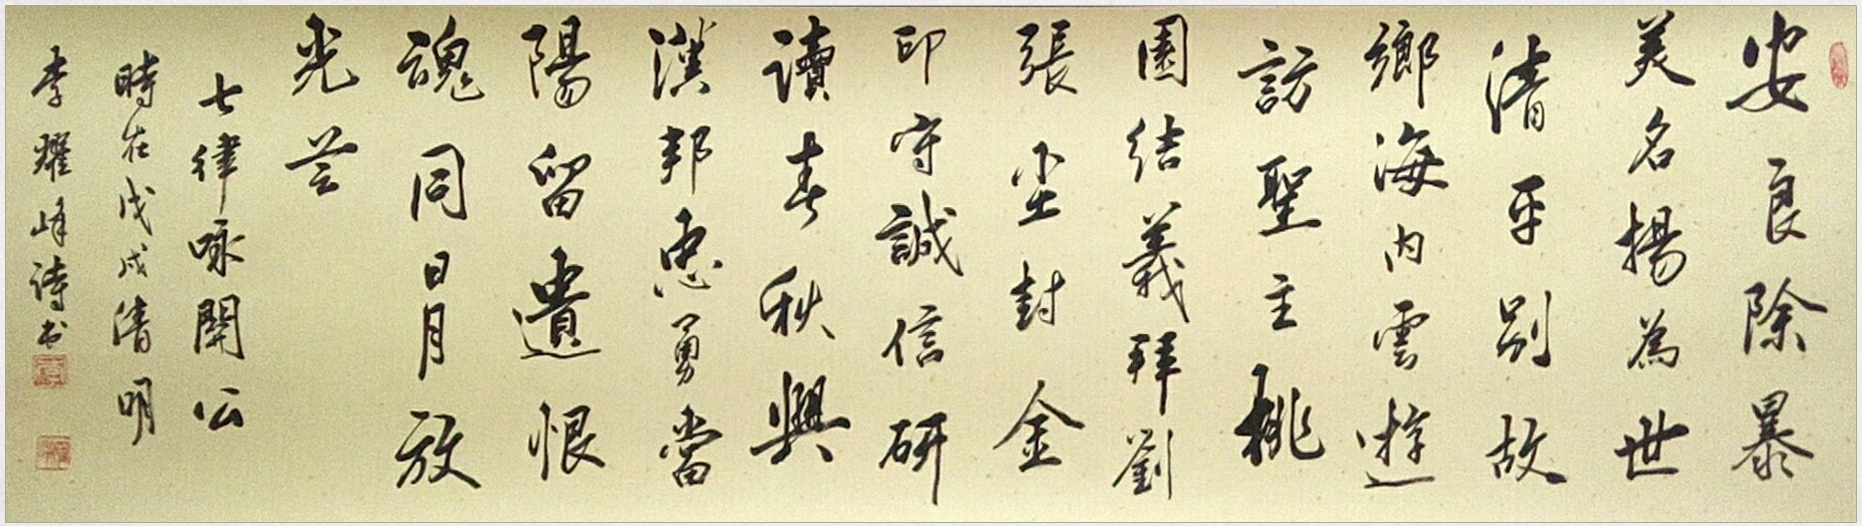 安良除暴
美名揚為世
清平別故
鄉海内雲遊
訪聖主桃
園結義拜劉
張坐封金
印守誠信研
讀春秋興
漢邦忠勇當
陽留遺恨
魂同日月放
光芒
七律咏關公
時在戊戌清明
李耀峰詩书